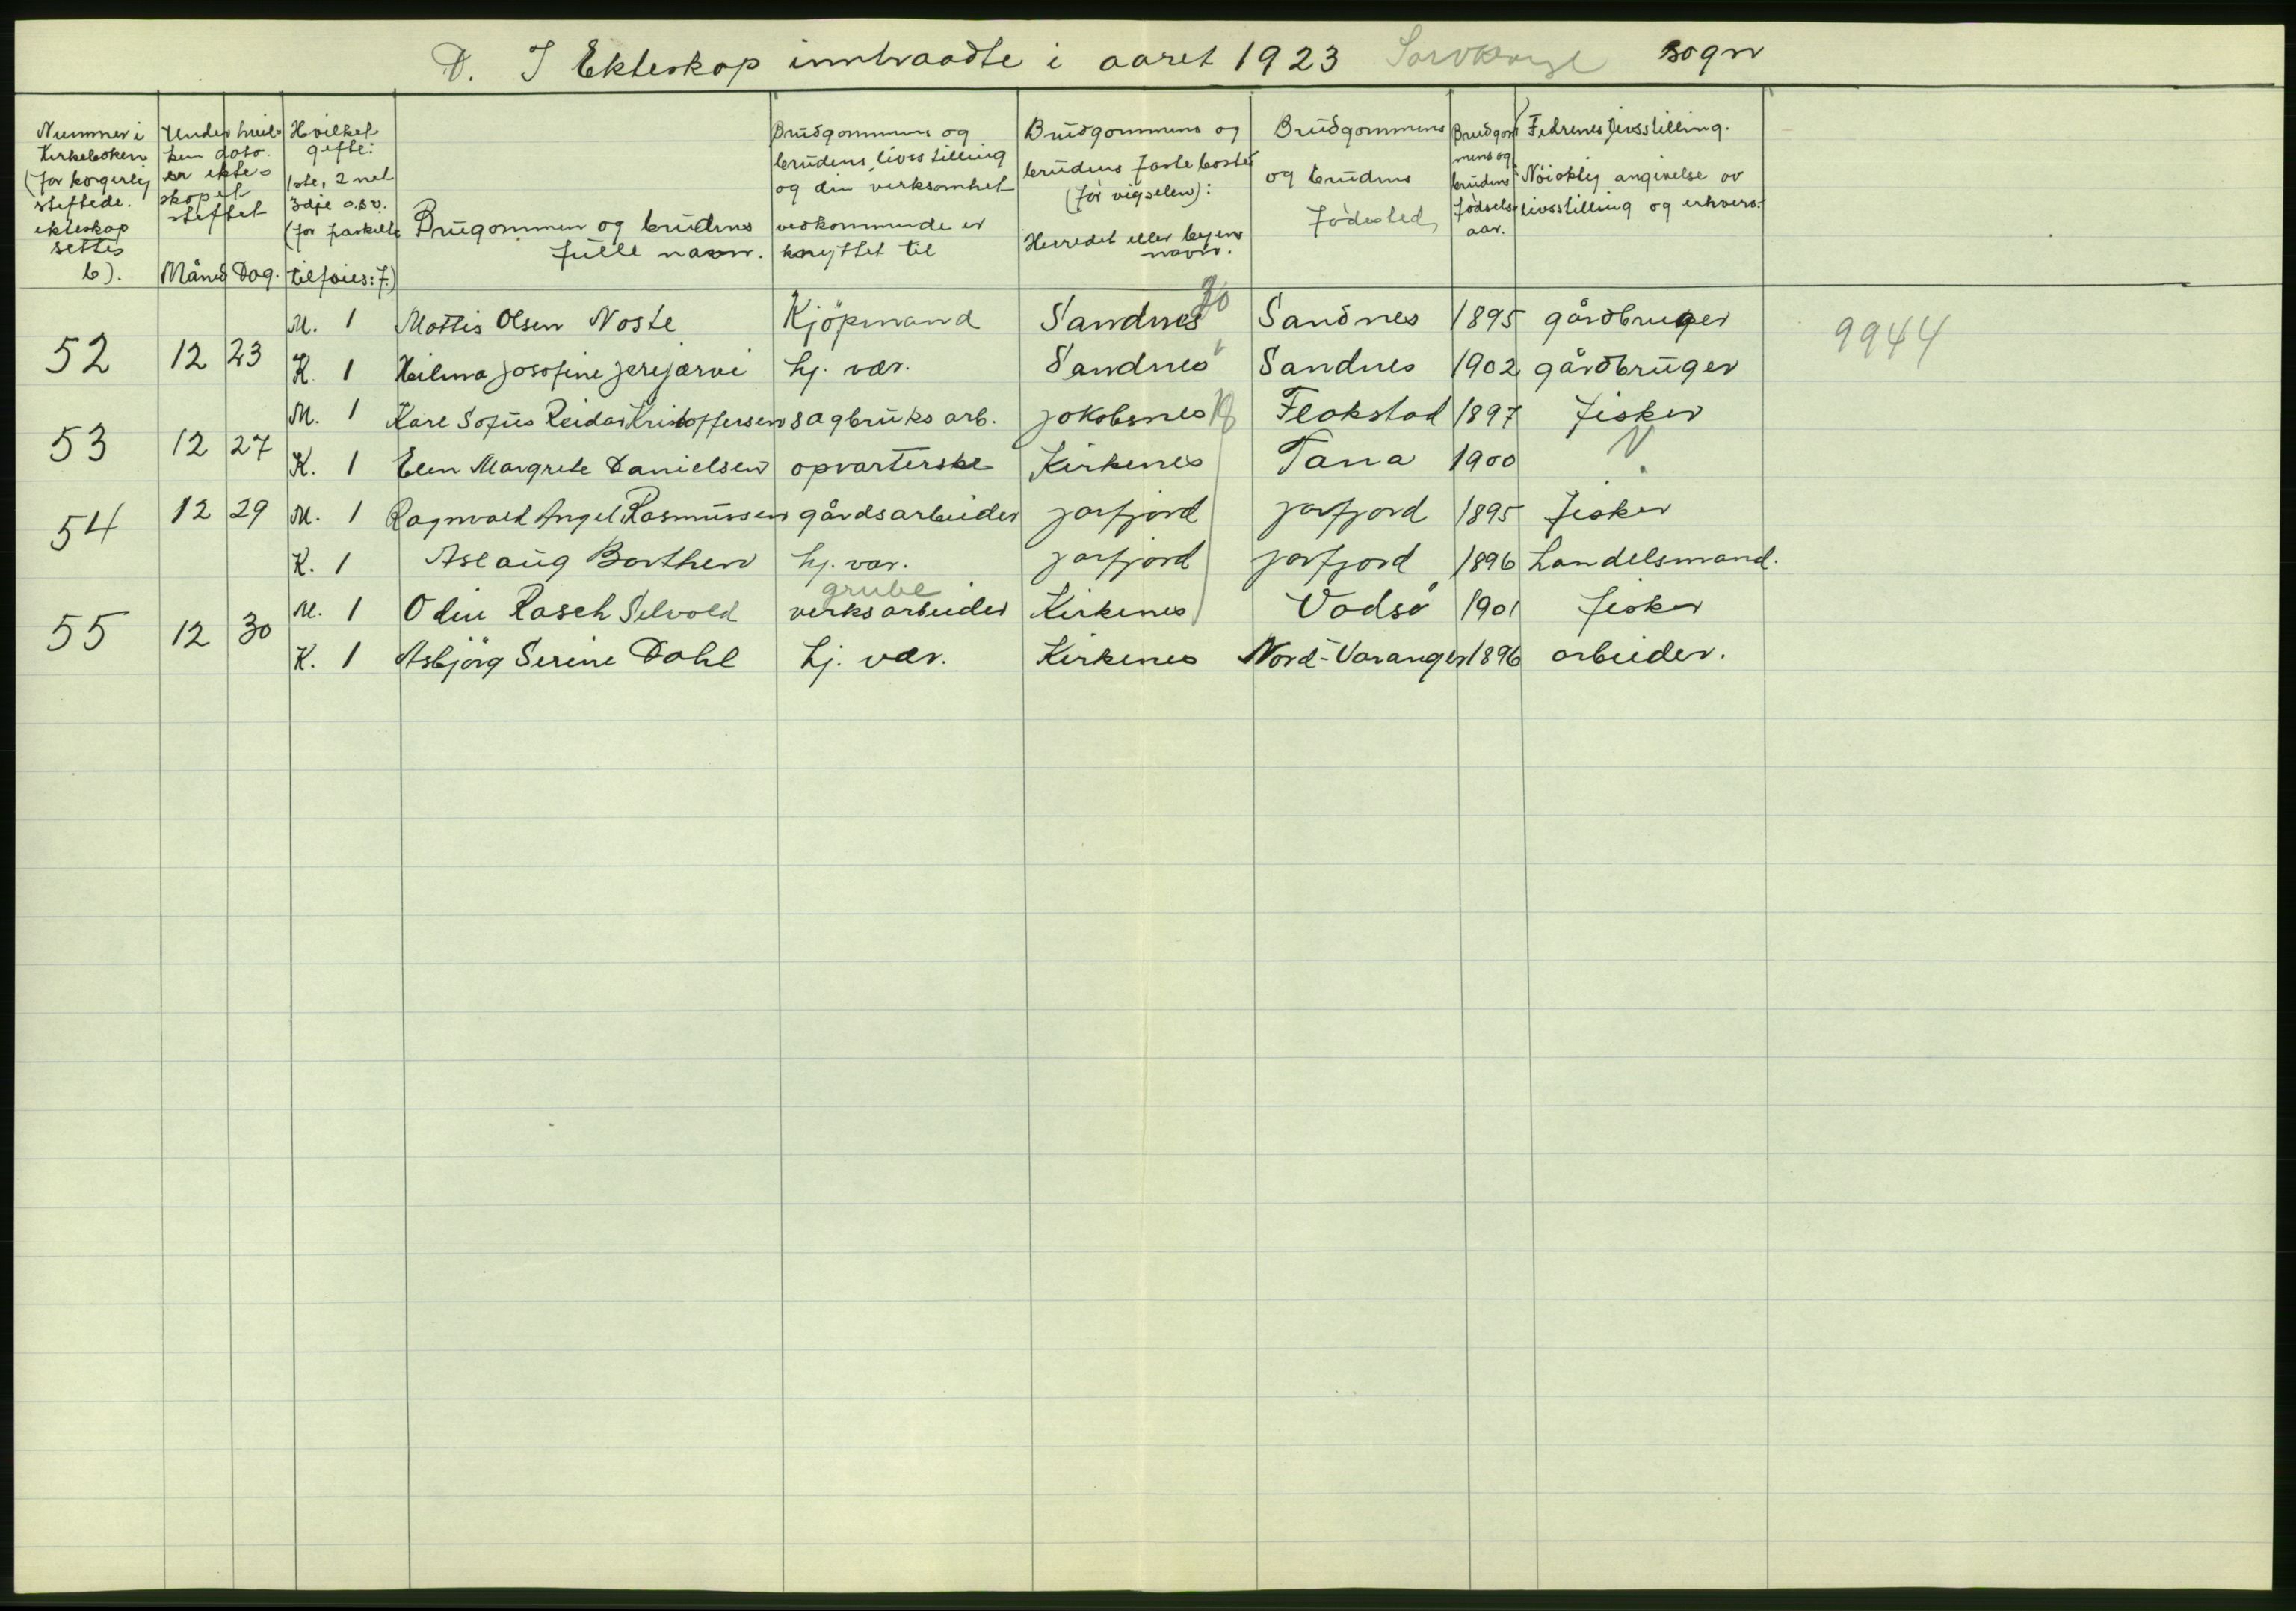 D. I Ekteskap inntraadte i aaret 1923 sogn
Nummer i Kirkeboken (for borgerlig stiftede ekteskap settes b).
Under hvilken dato er ekteskapet stiftet Måned Dag.
Hvilket gifte: 1ste, 2net 3dje o.s.v. (for fraskilte tilføies: f.)
Brugommen og brudens fulle navn.
Brudgommens og brudens livsstilling og din virksomhet vedkommende er knyttet til
Brudgommens og brudens faste bosted (før vigselen): Herredet eller byens navn.
Brudgommens og brudens fødested
Brudgommens og brudens fødselsaar.
Fedrenes livsstilling. Nøiaktig angivelse av livsstilling og erhverv.
52 12 23 M. 1 Mattis Olsen Noste Kjöpmand Sandnes 20 Sandnes 1895 gårdbruger 9944
K. 1 Hilma Josefine Jerijærvi hj. vær. Sandnes Sandnes 1902 gårdbruger
53 12 27 M. 1 Kare Sofus Reidar Kristoffersen sagbruks arb. Jakobsnes 18 Flakstad 1897 fisker
K. 1 Elen Margrete Danielsen opvarterske Kirkenes Tana 1900
54 12 29 M. 1 Ragnvald Angel Rasmussen gårdsarbeider Jarfjord Jarfjord 1895 fisker
K. 1 Aslaug Barthen hj. vær. Jarfjord Jarfjord 1896 handelsmand.
55 12 30 M. 1 Odin Rasch Selvold grube verksarbeider Kirkenes Vadsø 1901 fisker
K. 1 Asbjörg Serine Dahl hj. vær. Kirkenes Nord-Varanger 1896 arbeider.